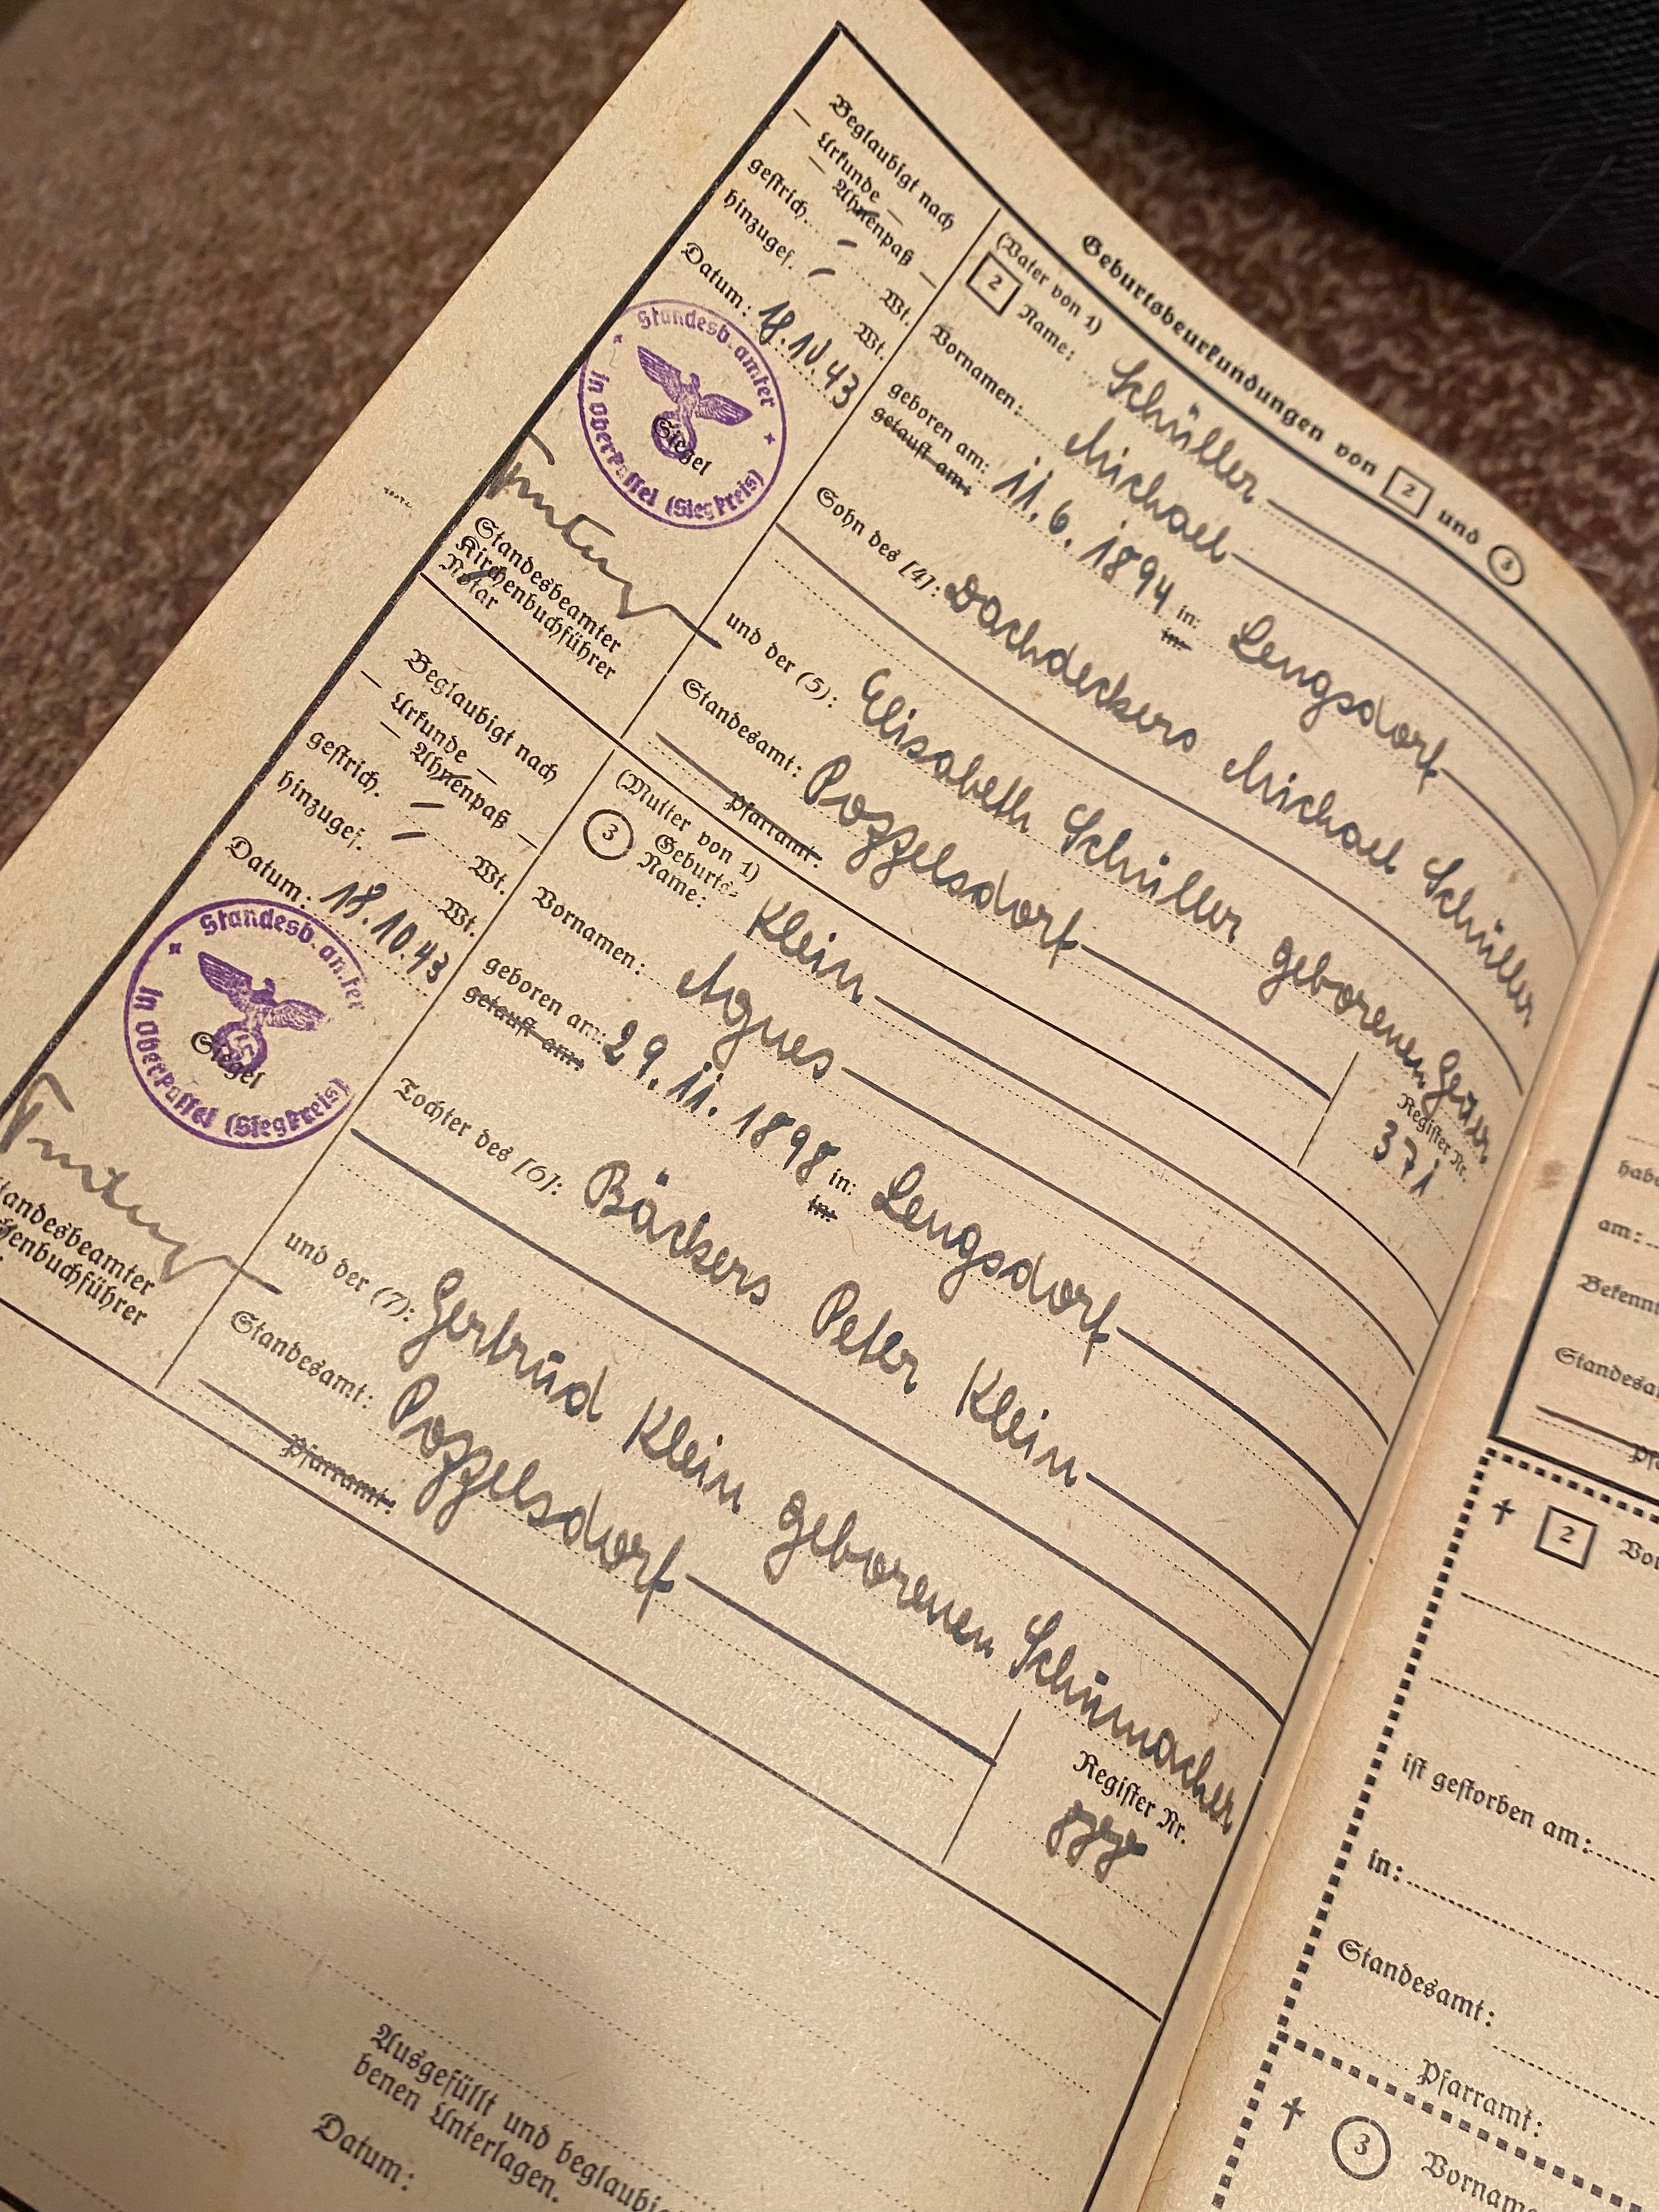 Geburtsbeurkundungen von 2 und 3
Beglaubigt nach
— Urkunde —
— Ahnenpaß —
gestrich. – Wt.
hinzuges. – Wt.
Datum: 18.10.43
Standesb.amter
in Oberkassel (Siegkreis)
Siegel
Standesbeamter
Kirchenbuchführer
Notar
(Vater von 1)
2 Name: Schüller
Vornamen: Michael
geboren am: 11. 6. 1894 in: Lengsdorf
getauft am: in:
Sohn des [4]: Dachdeckers Michael Schüller
und der (5): Elisabeth Schüller geborenen
Standesamt: Poppelsdorf
Pfarramt:
Register Nr.
371
Beglaubigt nach
— Urkunde —
— Ahnenpaß —
gestrich. – Wt.
hinzuges. – Wt.
Datum: 18.10.43
Standesb.amter
in Oberkassel (Siegkreis)
Siegel
Standesbeamter
Kirchenbuchführer
(Mutter von 1)
3 Geburts-
Name: Klein
Vornamen: Agnes
geboren am: 29. 11. 1898 in: Lengsdorf
getauft am: in:
Tochter des [6]: Bäckers Peter Klein
und der (7): Gertrud Klein geborenen Schumacher
Standesamt: Poppelsdorf
Pfarramt:
Register Nr.
Ausgefüllt und beglaubi
benen Unterlagen.
Datum:
habe
am:
Bekennt
Standesa
Pf
† 2 Vor
ist gestorben am:
in:
Standesamt:
Pfarramt:
† 3 Vorname